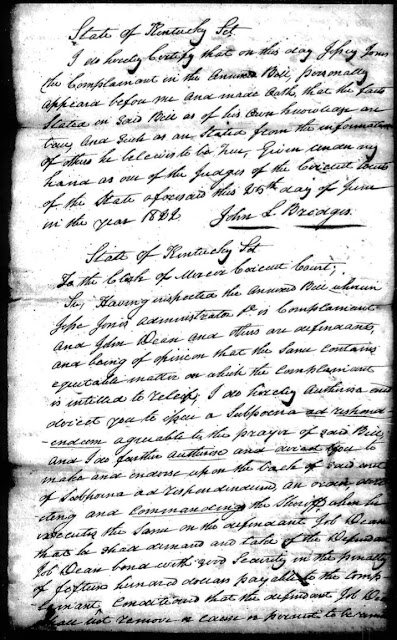 State of Kentucky Sct
I do hereby Certify that on this day Jesse Jones
the Complainant in the annexed Bill, personally
appeard before me and made oath, that the facts
Stated in said Bill as of his own knowledge are
true, and such as are stated from the information
of others he beleives to be true, Given under my
hand as one of the Judges of the Circuit Courts
of the State aforesaid this 25th day of June
in the year 1822 John L Bridges
State of Kentucky Sct
To the Clerk of Mercer Circuit Court,
Sir, Having inspected the annexed Bill wherein
Jesse Jones administrator &c is Complainant
and John Dean and others are defendants,
and being of opinion that the Same contains
equitable matter on which the Complainant
is intitled to releif, I do hereby Authorise and
direct you to issue a Subpoena ad respond
endum agreeable to the prayer of said Bill,
and I do further authorise and direct you to
make and endorse upon the back of said writ
of Subpoena ad respondendum, an order, direc
ting and Commanding the Sheriff when he
executes the Same on the defendant Job Dean
that he shall demand and take of the Defendant
Job Dean bond with good Security in the penalty
of fifteen hundred dollars payable to the Comp
lainant Conditioned that the defendant Job Dean
shall not remove or cause or permit to be